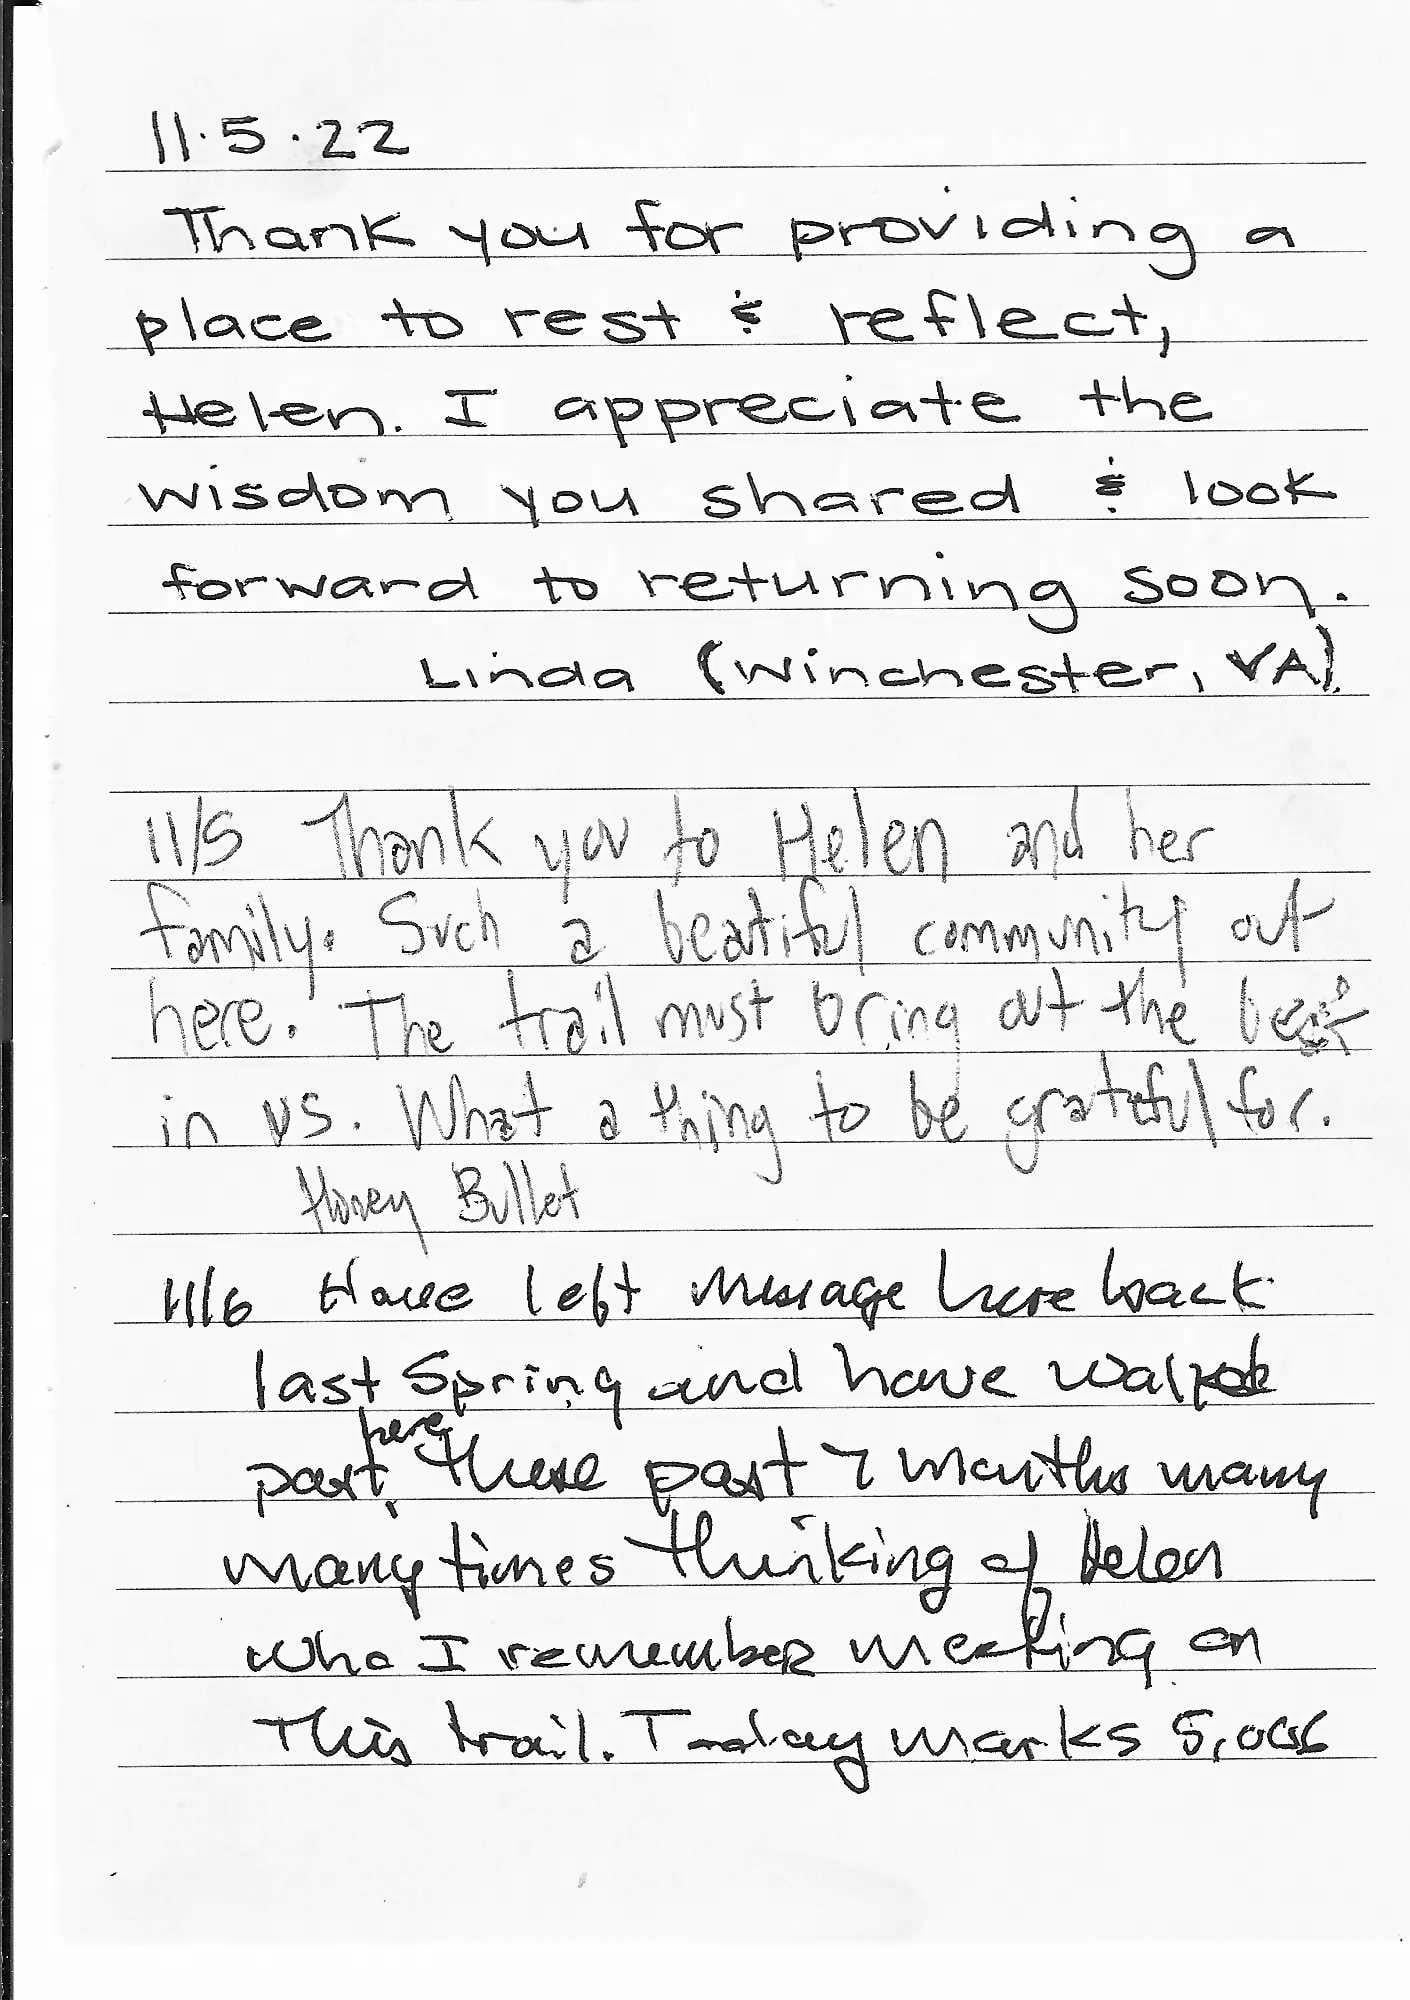 11.5.22
Thank you for providing a
place to rest & reflect,
Helen. I appreciate the
wisdom you shared & look
forward to returning soon.
Linda (Winchester, VA).
11/5 Thank you to Helen and her
family. Such a beatiful community out
here. The trail must bring out the best
in us. What a thing to be grateful for.
Honey Bullet
11/6 Have left message here back
last Spring and have walked
here
past, these past 7 months many
many times thinking of Helen
who I remember meeting on
This trail. Today marks